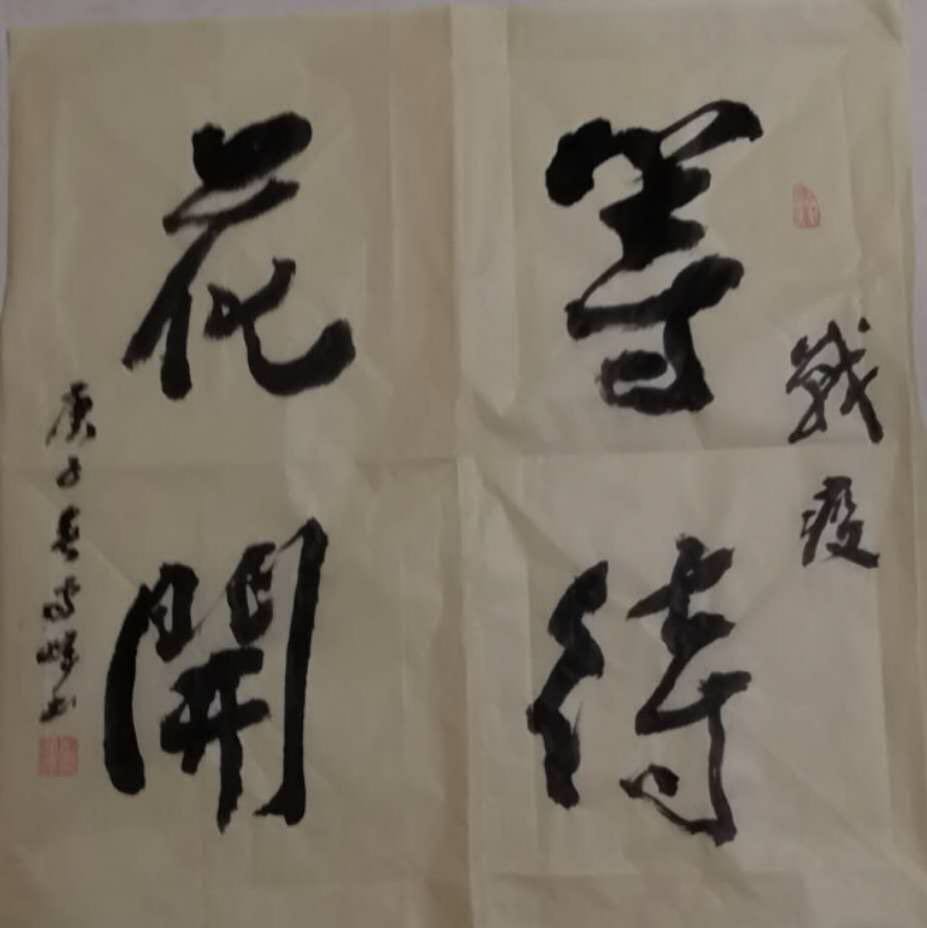 戰疫
等待
花開
庚子春
書